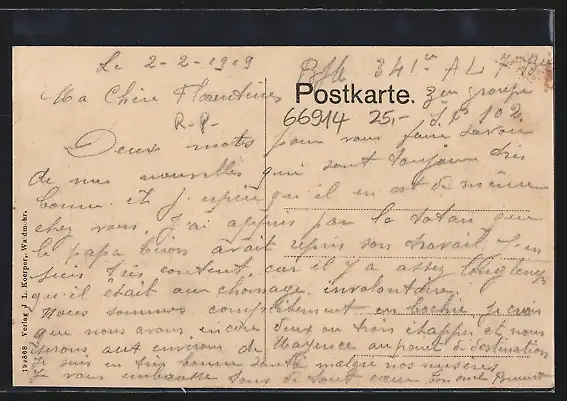 Le 2-2-1919
341e AL 7
Ma Chère Florentine
Postkarte.
3me groupe
66914 25,- S.P. 102
R-P-
Deux mots pour vous faire savoir
de mes nouvelles qui sont toujours très
bonne et j'espère qu'il en est de même
chez vous, j'ai appris par le totau que
le papa avait repris son travail, j'en
suis très content, car il y a assez longtemps
qu'il était au chomage involontaire.
Nous sommes complètement en boche je crois
que nous avons encore deux ou trois étapes et nous
serons aux environ de Mayence au point de destination
je suis en très bonne santé malgré nos misères
je vous embrasse tous de tout cœur
194868 Verlag J. L. Koerper, Waldmohr.